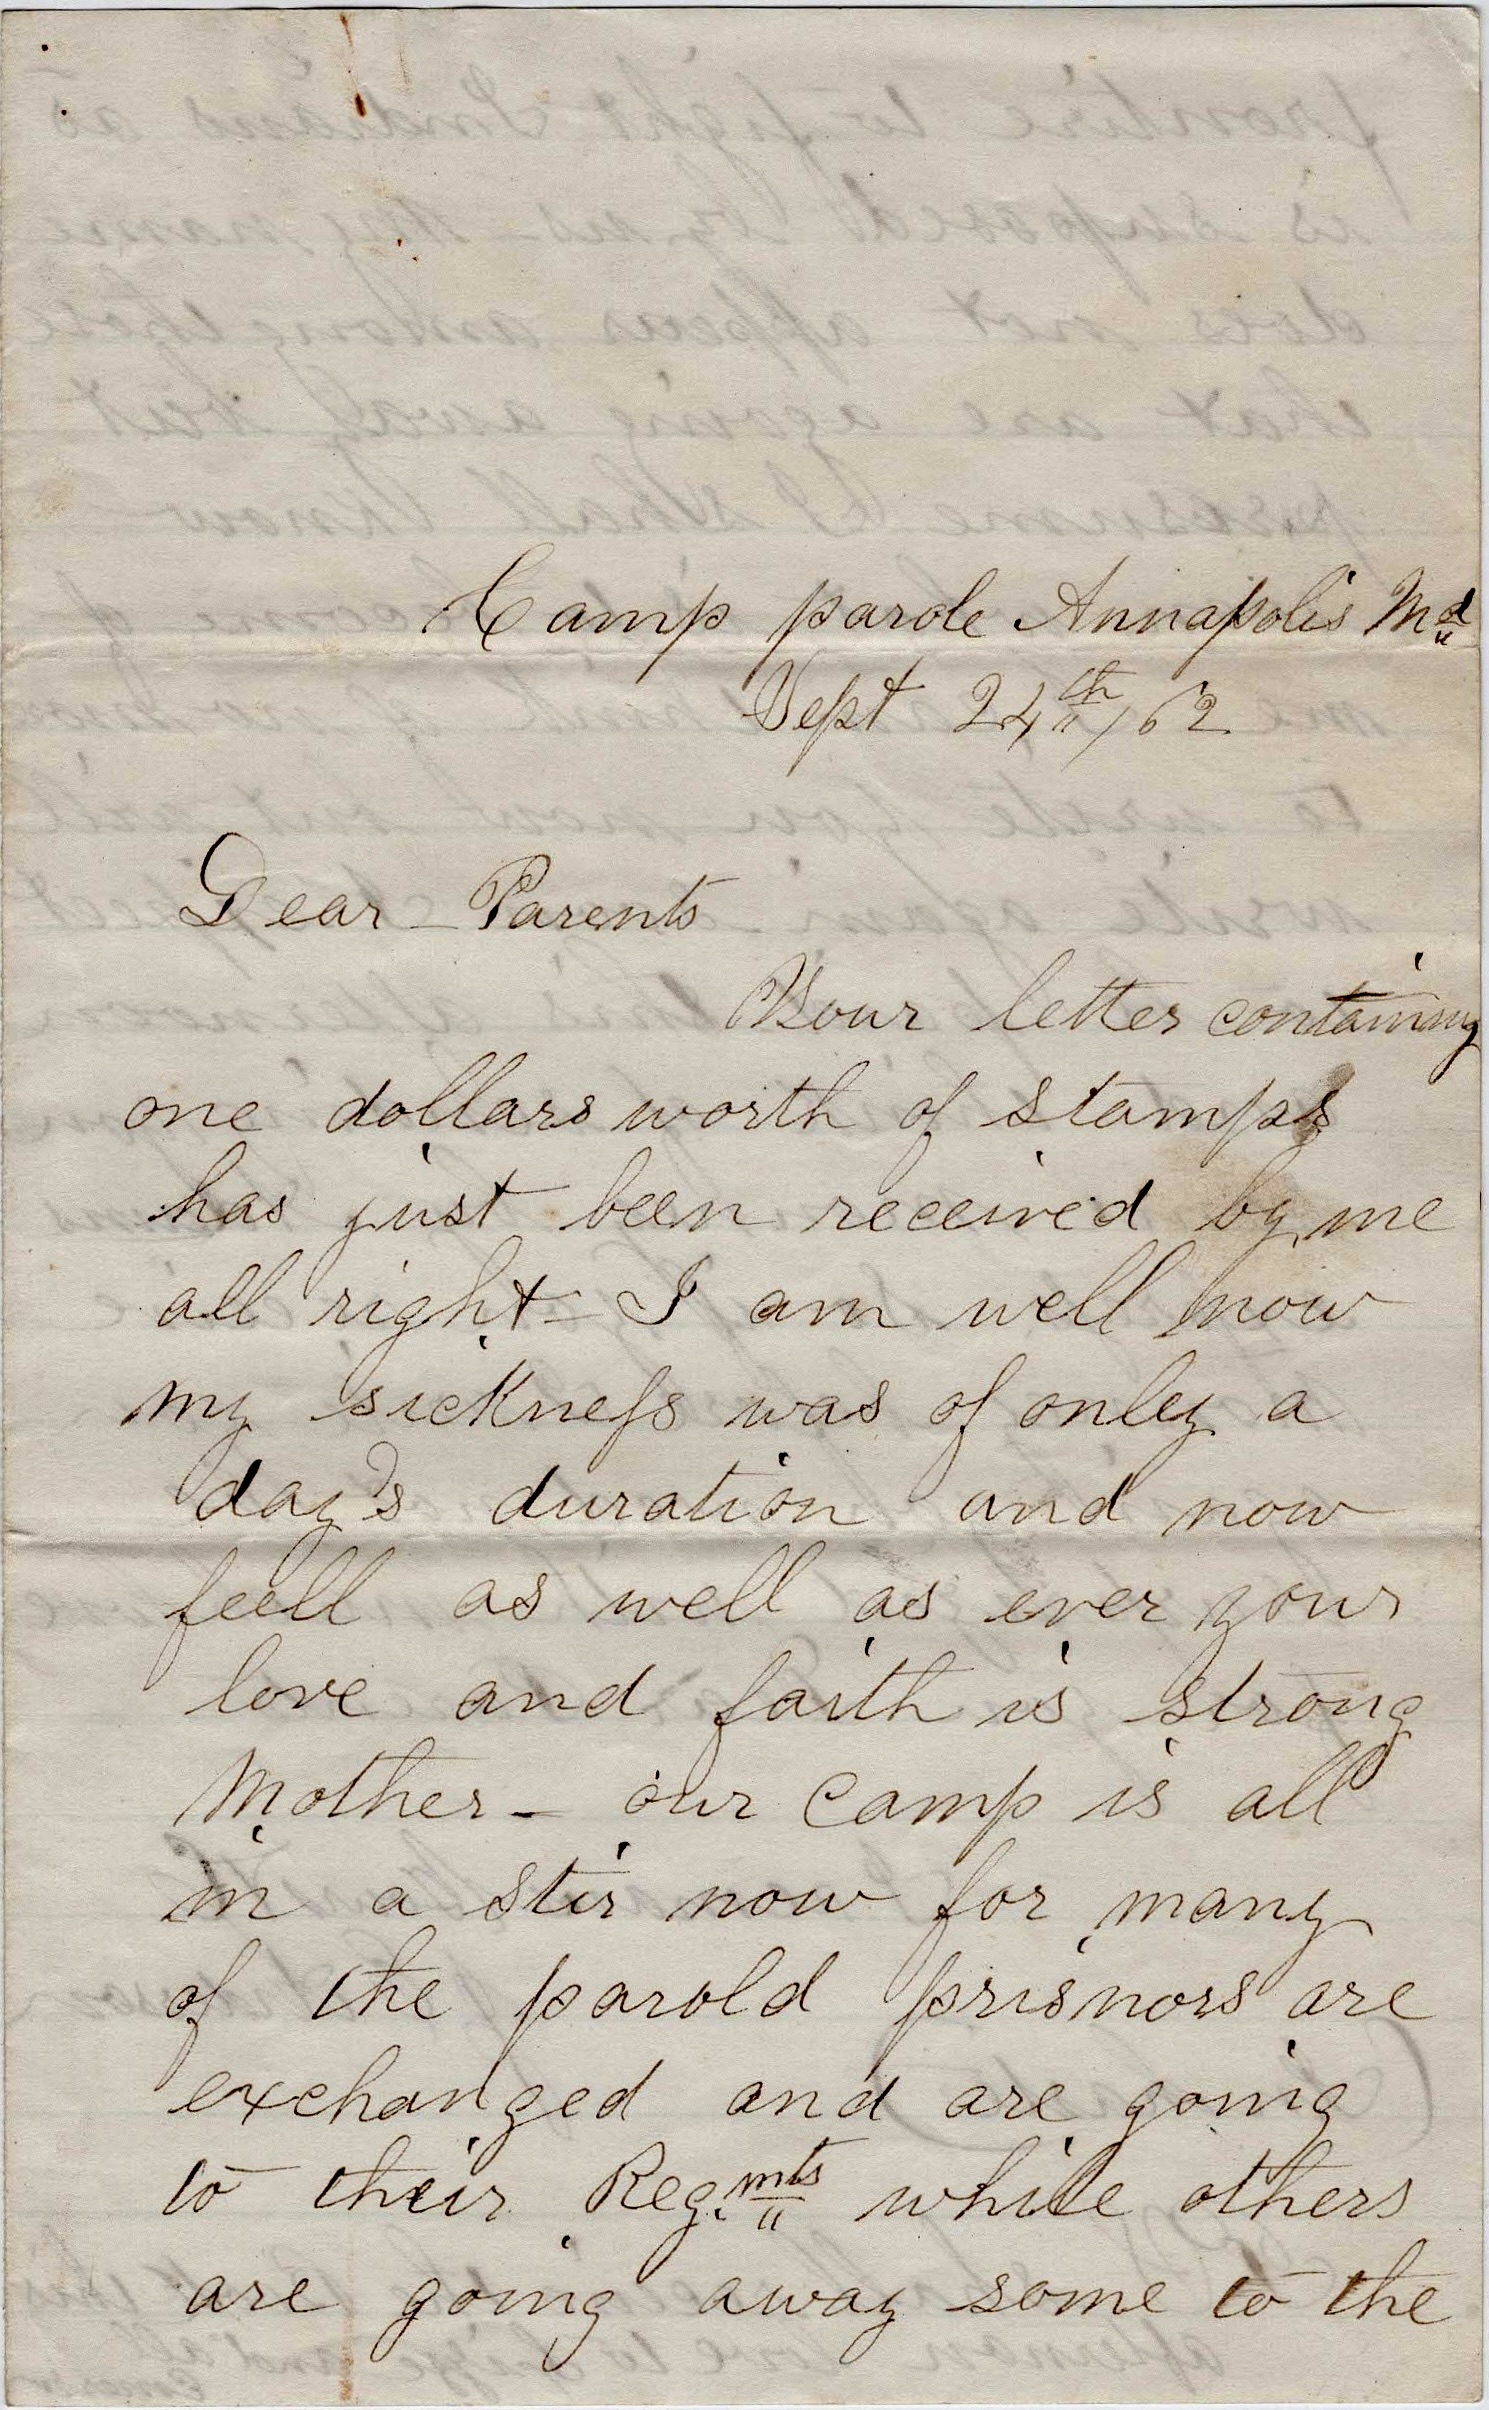 Camp parole Annapolis Md
Sept 24th/62
Dear - Parents
Your letter containing
one dollars worth of stamps
has just been received by me
all right - I am well now
my sickness was of only a
day's duration and now
feell as well as ever your
love and faith is strong
Mother - our camp is all
in a stir now for many
of the parold prisnors are
exchanged and are going
to their Reg.mts while others
are going away some to the